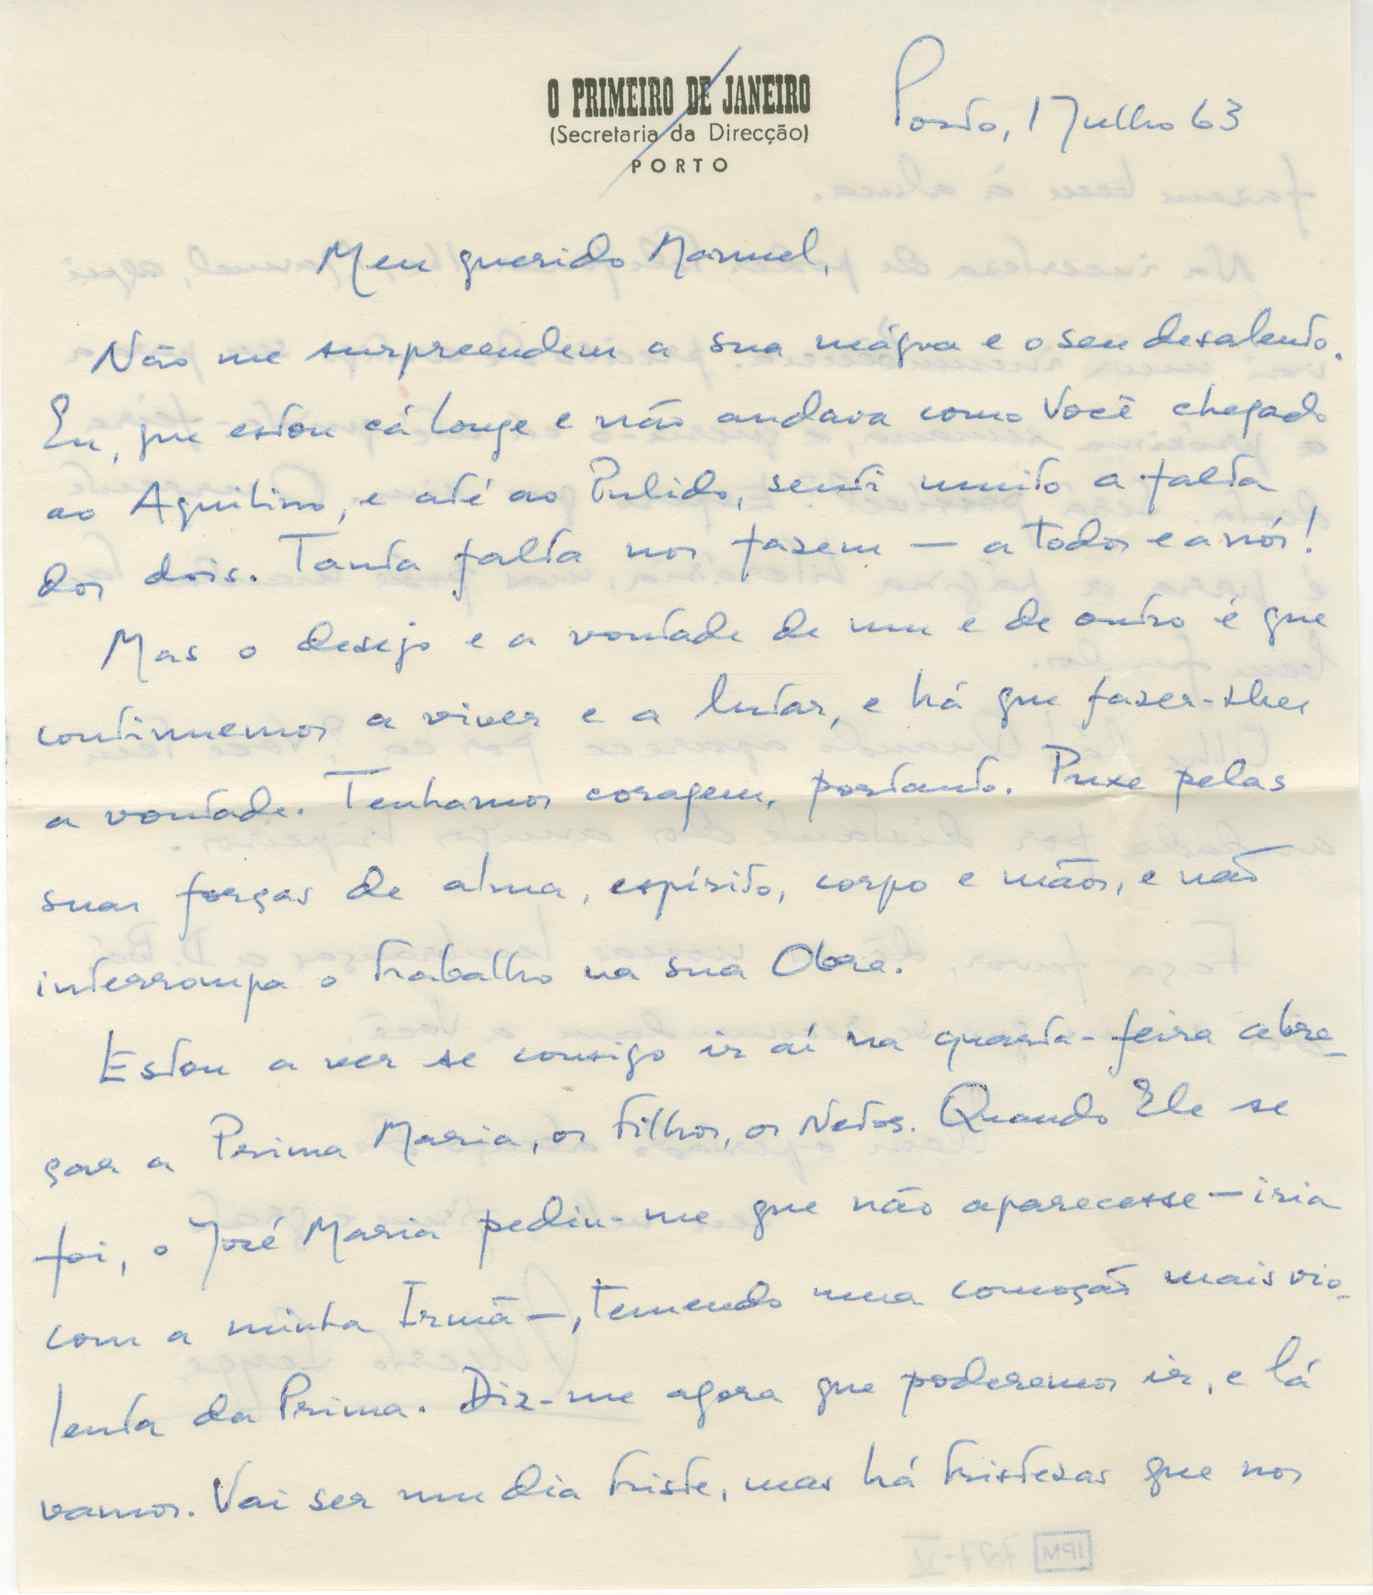 O PRIMEIRO DE JANEIRO
(Secretaria da Direcção)
PORTO
Porto, 1 Julho 63
Meu querido Manuel,
Não me surpreendem a sua mágoa e o seu desalento.
Eu, que estou cá longe e não andava como Você chegado
ao Aquilino, e até ao Pulido, senti muito a falta
dos dois. Tanta falta nos fazem — a todos e a nós!
Mas o desejo e a vontade de um e de outro é que
continuemos a viver e a lutar, e há que fazer-lhes
a vontade. Tenhamos coragem, portanto. Puxe pelas
suas forças de alma, espírito, corpo e mãos, e não
interrompa o trabalho na sua Obra.
Estou a ver se consigo ir aí na quarta-feira abra-
çar a Prima Maria, os Filhos, os Netos. Quando Ele se
foi, o José Maria pediu-me que não aparecesse — iria
com a minha Irmã —, temendo uma comoção mais vio-
lenta da Prima. Diz-me agora que poderemos ir, e lá
vamos. Vai ser um dia triste, mas há tristezas que nos